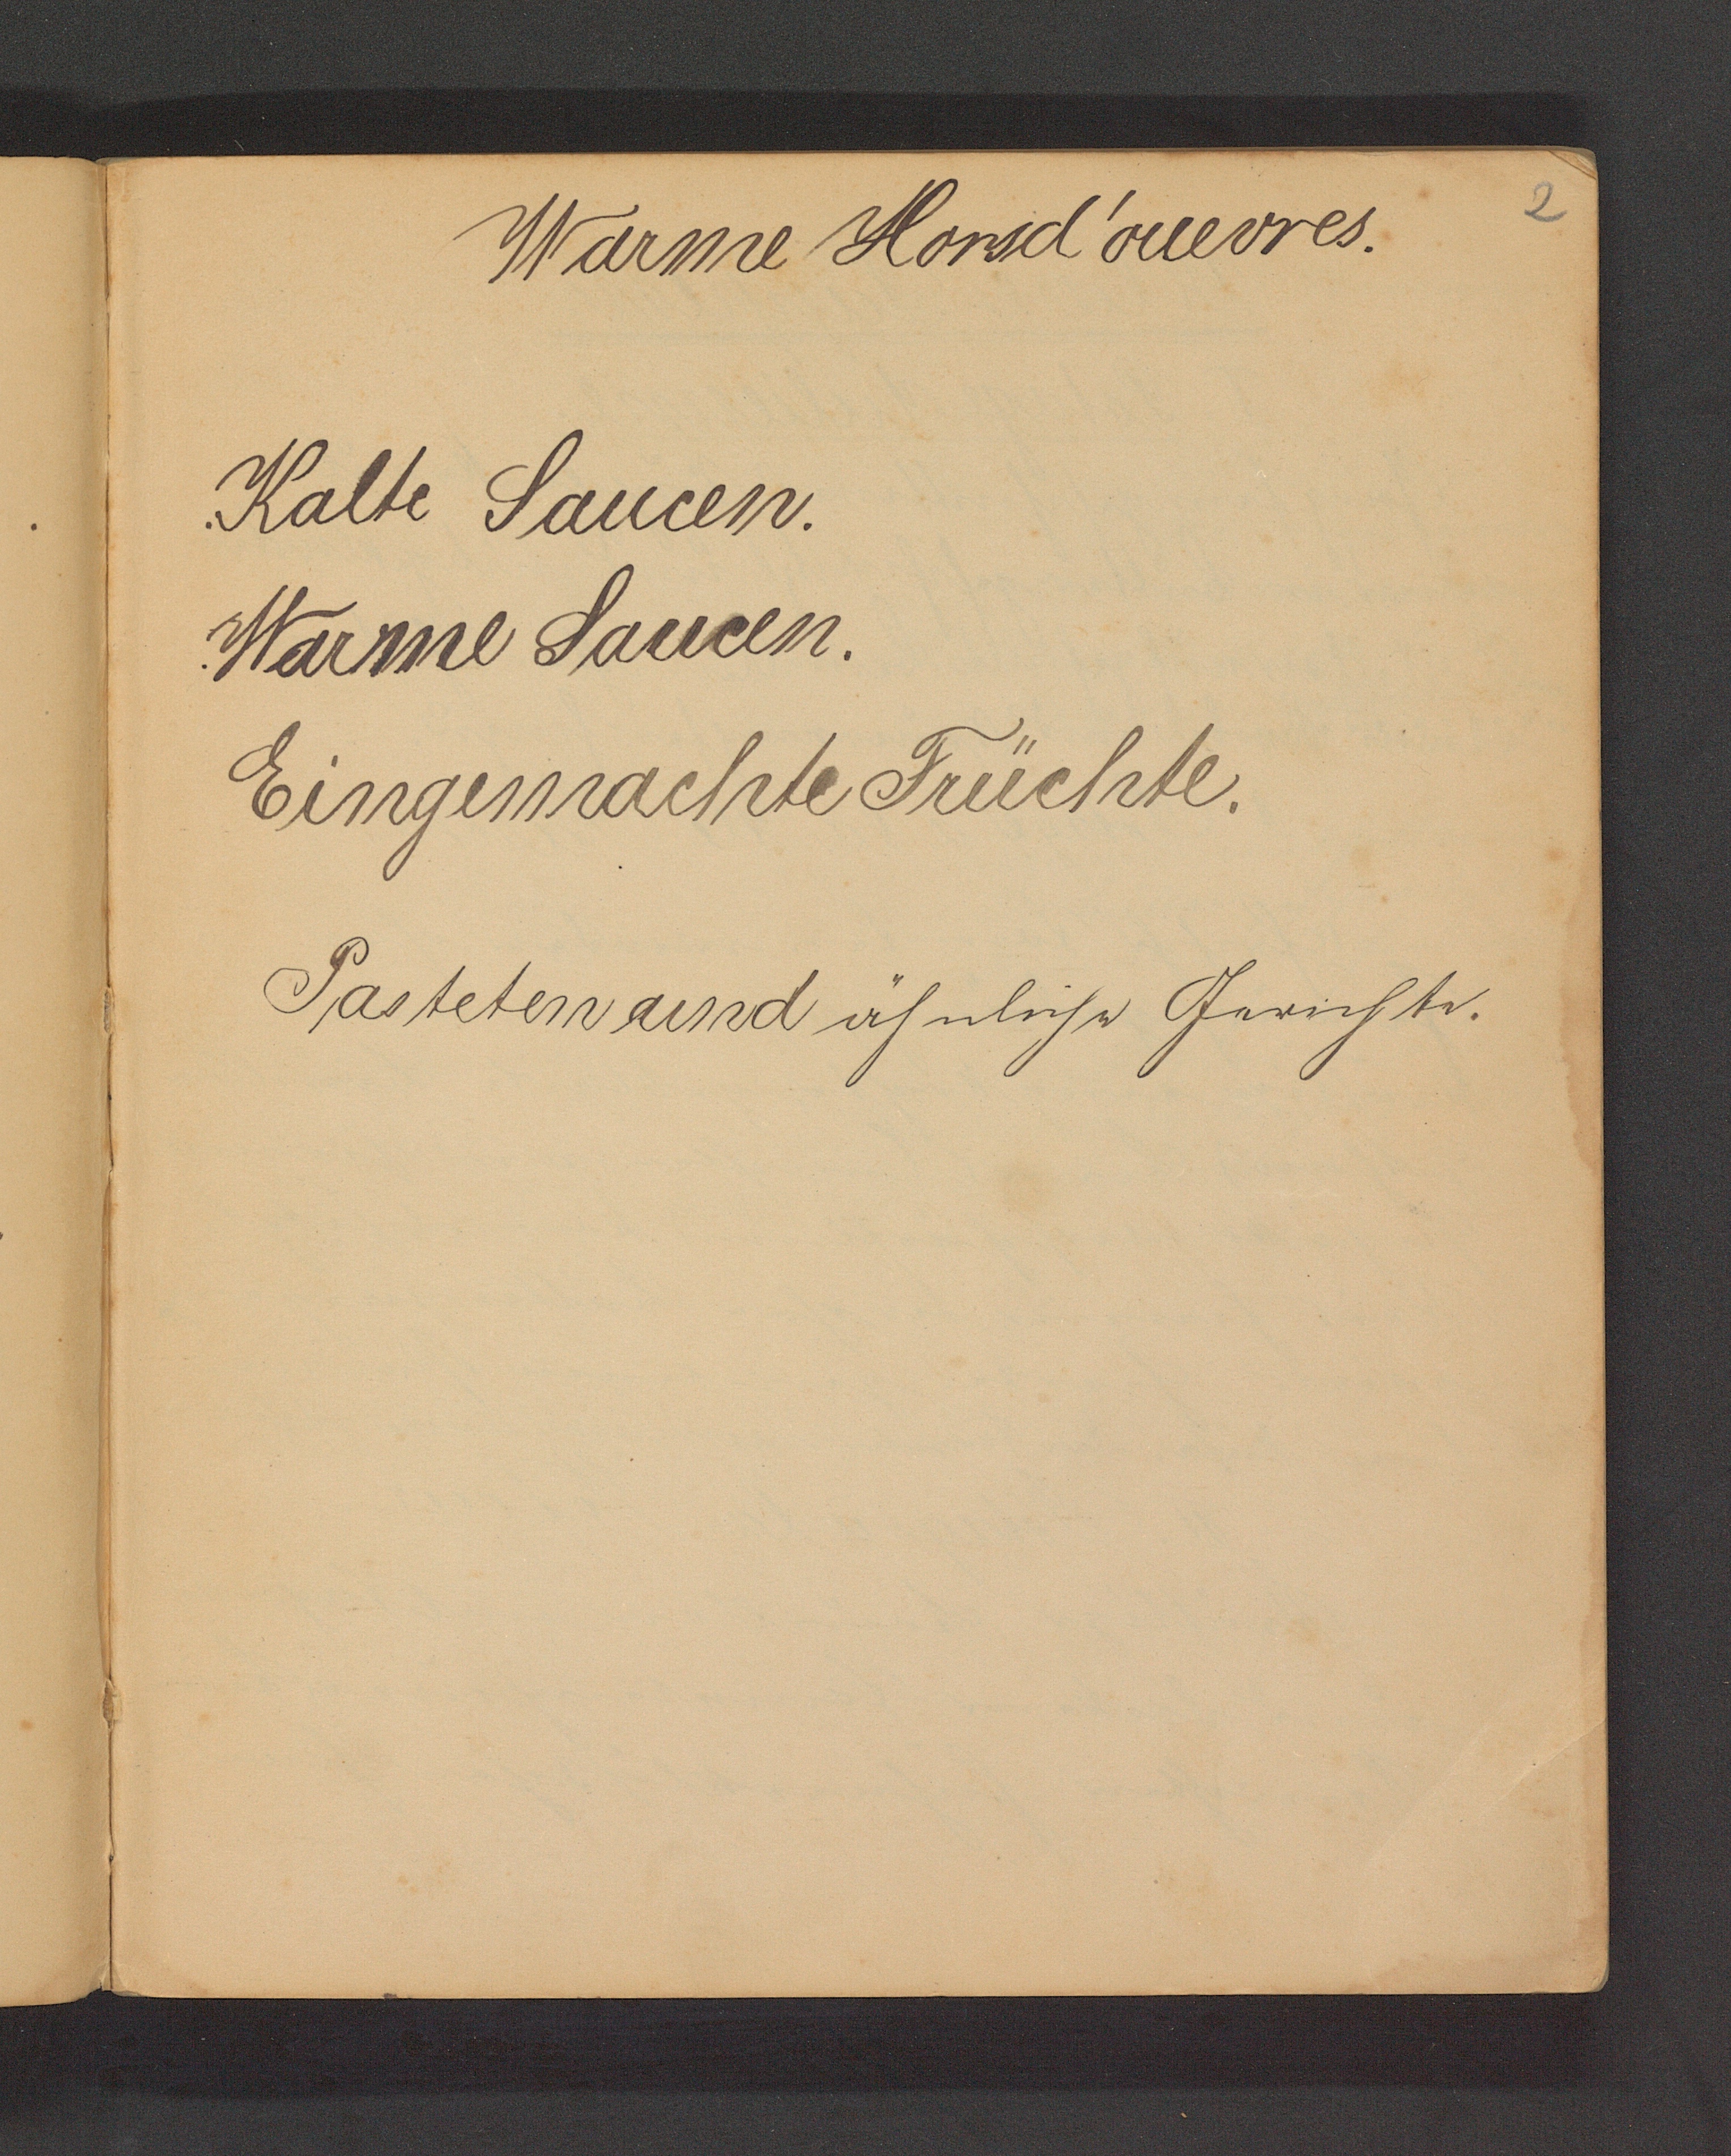 2
Warme Horsd'ouevres.
Kalte Saucen.
Warme Saucen.
Eingemachte Früchte.
Pasteten und ähnliche Gerichte.